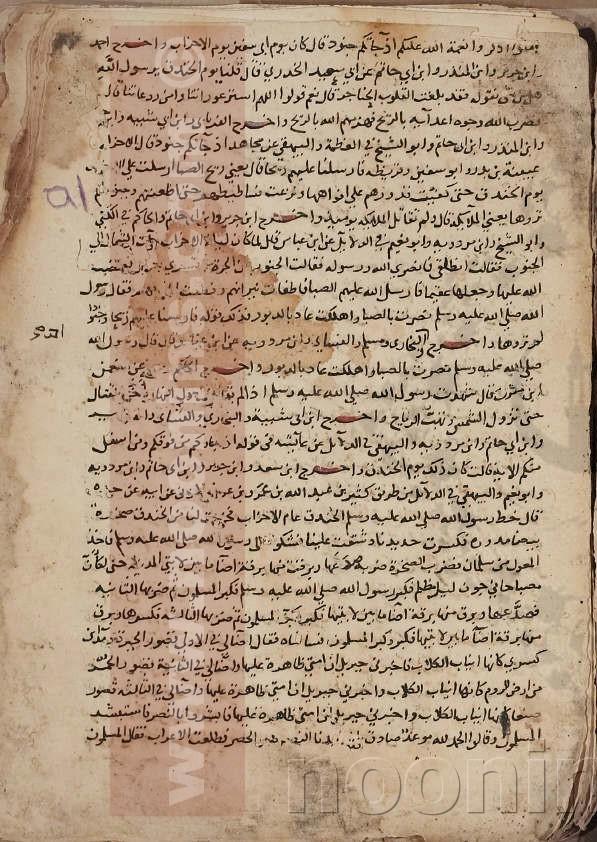 اذكروا نعمة الله عليكم اذ جاءتكم جنود قال كان يوم ابي سفين يوم الاحزاب واخرج احمد
وابن جرير وابن المنذر وابن ابي حاتم عن ابي سعيد الخدري قال قلنا يوم الخندق يرسول الله
هل من شئ نقوله فقد بلغت القلوب الحناجر قال نعم قولوا اللهم استر عوراتنا وامن روعاتنا قال
فضرب الله وجوه اعدآيه بالريح فهزمهم الله بالريح واخرج الفريابي وابن ابي شيبه وابن جرير
وابن المنذر وابن ابي حاتم وابو الشيخ في العظمة والبيهقي عن مجاهد اذ جاتكم جنود قال الاحزاب
عيينة بن بدر وابو سفين وقريظه فارسلنا عليهم ريحا قال يعني ريح الصبا ارسلت علي الاحزاب
يوم الخندق حتي كفئت قدورهم علي افواهها ونزعت فساطيطهم حتي اظعنتهم وجنودا لم
تروها يعني الملآيكة قال ولم تقاتل الملايكه يوميذ واخرج ابن جرير وابن ابي حاتم والحاكم في الكني
وابو الشيخ وابن مردويه وابو نعيم في الدلآيل عن ابن عباس قال لما كان ليلة الاحزاب جآت الشمال الي
الجنوب فقالت انطلقي فانصري الله ورسوله فقالت الجنوب ان الحرة لا تسري بالليل فغضب
الله عليها وجعلها عقيما فارسل الله عليهم الصبا فاطفات نيرانهم وقطعت اطنابهم فقال رسول
الله صلي الله عليه وسلم نصرت بالصبا واهلكت عاد بالدبور فذلك قوله فارسلنا عليهم ريحا وجنودا
لم تروها واخرج البخاري ومسلم والنسايي وابن مردويه عن ابن عباس قال قال رسول الله
صلي الله عليه وسلم نصرت بالصبا واهلكت عاد بالدبور واخرج عن
ابن مقرن قال شهدت رسول الله صلي الله عليه وسلم اذا لم يقاتل من اول النهار اخر القتال
حتي تزول الشمس وتهب الرياح واخرج ابن ابي شيبة والبخاري والنسايي وابن جرير
وابن ابي حاتم وابن مردويه والبيهقي في الدلآيل عن عآيشه في قوله اذ جاوكم من فوقكم ومن اسفل
منكم الاية قالت كان ذلك يوم الخندق واخرج ابن سعد وابن جرير وابن ابي حاتم وابن مردويه
وابو نعيم والبيهقي في الدلآيل من طريق كثير بن عبد الله بن عمرو بن عوف المزني عن ابيه عن جده
قال خط رسول الله صلي الله عليه وسلم الخندق عام الاحزاب فخرجت لنا من الخندق صخرة
بيضا مدوره فكسرت حديدنا وشقت علينا فشكونا الي رسول الله صلي الله عليه وسلم فاخذ
المعول من سلمان فضرب الصخرة ضربة صدعها وبرقت منها برقة اضا ما بين لابتي المدينة حتي لكان
مصباحا في جوف ليل مظلم فكبر رسول الله صلي الله عليه وسلم فكبر المسلمون ثم ضربها الثانية
فصدعها وبرق منها برقة اضآ ما بين لابتيها فكبر وكبر المسلمون ثم ضربها الثالثه فكسرها وبرق
منها برقة اضآ ما بين لابتيها فكبر وكبر المسلمون فسالناه فقال اضآ لي في الاولي قصور الحيرة ومدآين
كسري كانها انياب الكلاب فاخبرني جبريل ان امتي ظاهرة عليها واضآ لي في الثانية قصور الحمر
من ارض الروم كانها انياب الكلاب واخبرني جبريل ان امتي ظاهرة عليها واضآ لي في الثالثه قصور
صنعا كانها انياب الكلاب واخبرني جبريل ان امتي ظاهرة عليها فابشروا بالنصر فاستبشر
المسلمون وقالوا الحمد لله موعد صادق بان وعدنا النصر بعد الحصر فطلعت الاحزاب فقال المسلمون
51
www.
noonin